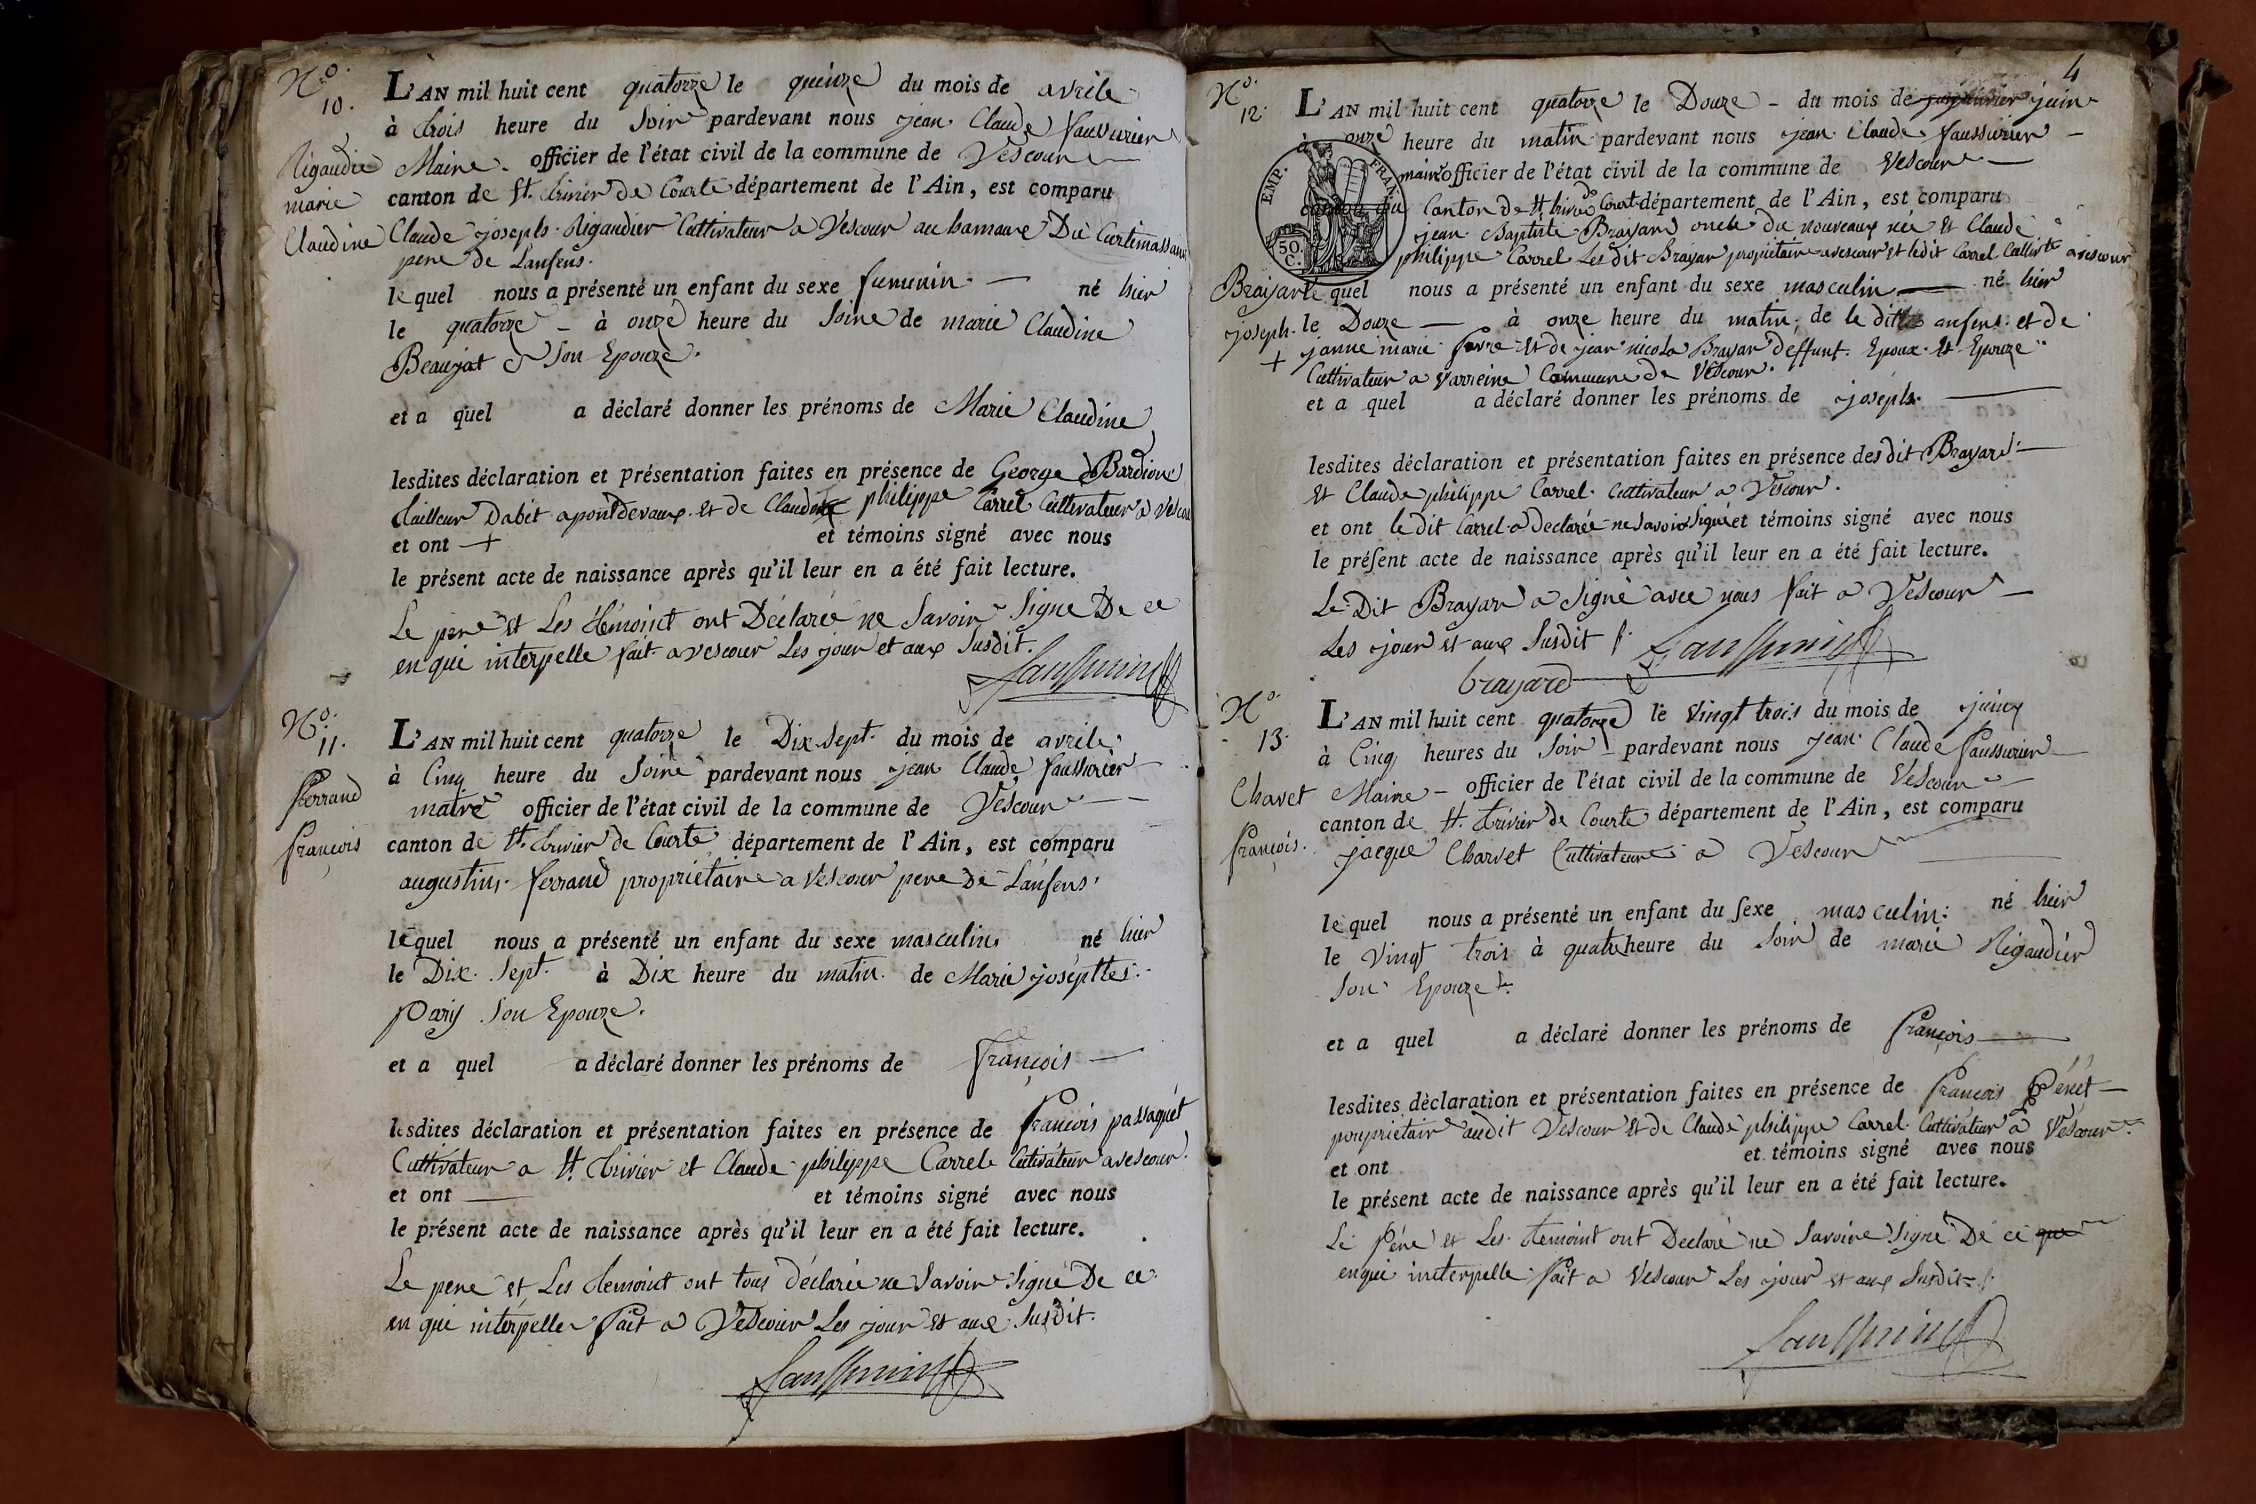 N.º 10.
Rigaudie
marie
Claudine
L'AN mil huit cent quatorze le queinze du mois de avrile
à trois heure du Soir pardevant nous jean Claude faussurier
Maire officier de l'état civil de la commune de Vescour
canton de St. trivier de Courte département de l'Ain, est comparu
Claude joseph Rigaudier Cultivateur a Vescour au hamaux De
pere de Lanfens.
lequel nous a présenté un enfant du sexe femenin né hier
le quatorze à onze heure du Soire de marie Claudine
Beaujat Son Epouze.
et a quel a déclaré donner les prénoms de Marie Claudine
lesdites déclaration et présentation faites en présence de George Bardion
tailleur Dabit a pontdevaux et de Claude philippe Carrel Cultivateur a Vescou
et ont + et témoins signé avec nous
le présent acte de naissance après qu'il leur en a été fait lecture.
Le pere et Les témoint ont Déclarée ne Savoir Signe De ce
en qui interpelle fait a vescour Les jour et aux Susdit.
N.º 11.
ferrand
françois
L'AN mil huit cent quatorze le Dix Sept. du mois de avrile
à Cinq heure du Soire pardevant nous jean Claude faussurier
maire officier de l'état civil de la commune de Vescour
canton de St. trivier de Courte département de l'Ain, est comparu
augustin ferrand proprietaire a Vescour pere De Lanfens
lequel nous a présenté un enfant du sexe masculin né hier
le Dix Sept. à Dix heure du matin de Marie joseptte
Pary Son Epouze.
et a quel a déclaré donner les prénoms de françois
lesdites déclaration et présentation faites en présence de françois passaquet
Cultivateur a St. trivier et Claude philippe Carrele Cultivateur a vescour
et ont et témoins signé avec nous
le présent acte de naissance après qu'il leur en a été fait lecture.
Le pere et Les temoint ont tous déclarée ne Savoir Signe De ce
en qui interpelle fait a Vescour Les jour et aux Susdit.
4
EMP. FRAN.
50 C.
N.º 12.
Brayar
joseph.
+
L'AN mil huit cent quatorze le Douze du mois de juin
à onze heure du matin pardevant nous jean Claude faussurier
maire officier de l'état civil de la commune de Vescour
canton du Canton de St trivier de Court département de l'Ain, est comparu
jean Baptiste Brayard oncle du nouveaux née et Claude
philippe Carrel Les dit Brayar propriétaire a vescour et ledit Carrel Cultivt a vescour
le quel nous a présenté un enfant du sexe masculin né hier
le Douze à onze heure du matin de le dit anfens et de
janne marie favre et de jean nicola Brayar deffunt Epoux et Epouze
Cultivateur a Varreine Commune de Vescour.
et a quel a déclaré donner les prénoms de joseph.
lesdites déclaration et présentation faites en présence desdit Brayard
et Claude philippe Carrel Cultivateur a Vescour.
et ont le dit Carrel a declarée ne Savoir Signé et témoins signé avec nous
le présent acte de naissance après qu'il leur en a été fait lecture.
Le Dit Brayar a Signé avec nous fait a Vescour
Les jour et aux Susdit
brayard
N.º 13.
Chavet
françois.
L'AN mil huit cent quatorze le Vingt trois du mois de
à Cinq heures du Soir pardevant nous jean Claude faussurier
Maire officier de l'état civil de la commune de Vescour
canton de St. trivier de Courte département de l'Ain, est comparu
jacque Charvet Cultivateure a Vescour
le quel nous a présenté un enfant du sexe masculin né hier
le Vingt trois à quatre heure du Soir de marie Rigaudier
Son Epouze
et a quel a déclaré donner les prénoms de françois
lesdites déclaration et présentation faites en présence de françois
poupriétair audit Vescour et de Claude philippe Carrel Cultivateur a Vescour
et ont et témoins signé avec nous
le présent acte de naissance après qu'il leur en a été fait lecture.
Le Pére et Les temoint ont Declaré ne Savoire Signé De ce que
en qui interpelle fait a Vescour Les jour et aux Susdit